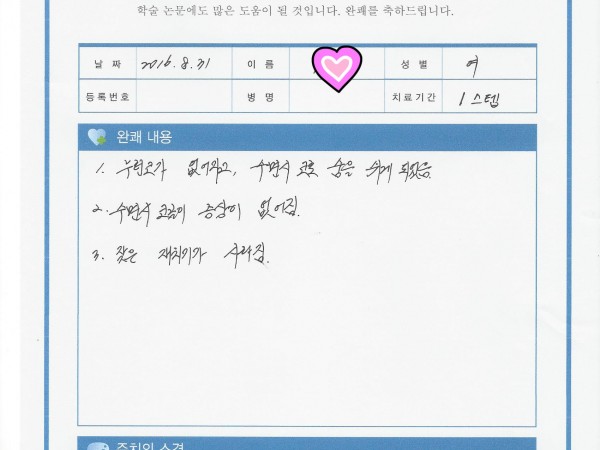 학술 논문에도 많은 도움이 될 것입니다. 완쾌를 축하드립니다.
날 짜 2016.8.31 이 름 성 별 여
등록번호 병 명 치료기간 1 스텝
완쾌 내용
1. 누런코가 없어지고, 수면시 코로 숨을 쉬게 되었음.
2. 수면시 코골이 증상이 없어짐.
3. 잦은 재치기가 사라짐.
주치의 소견